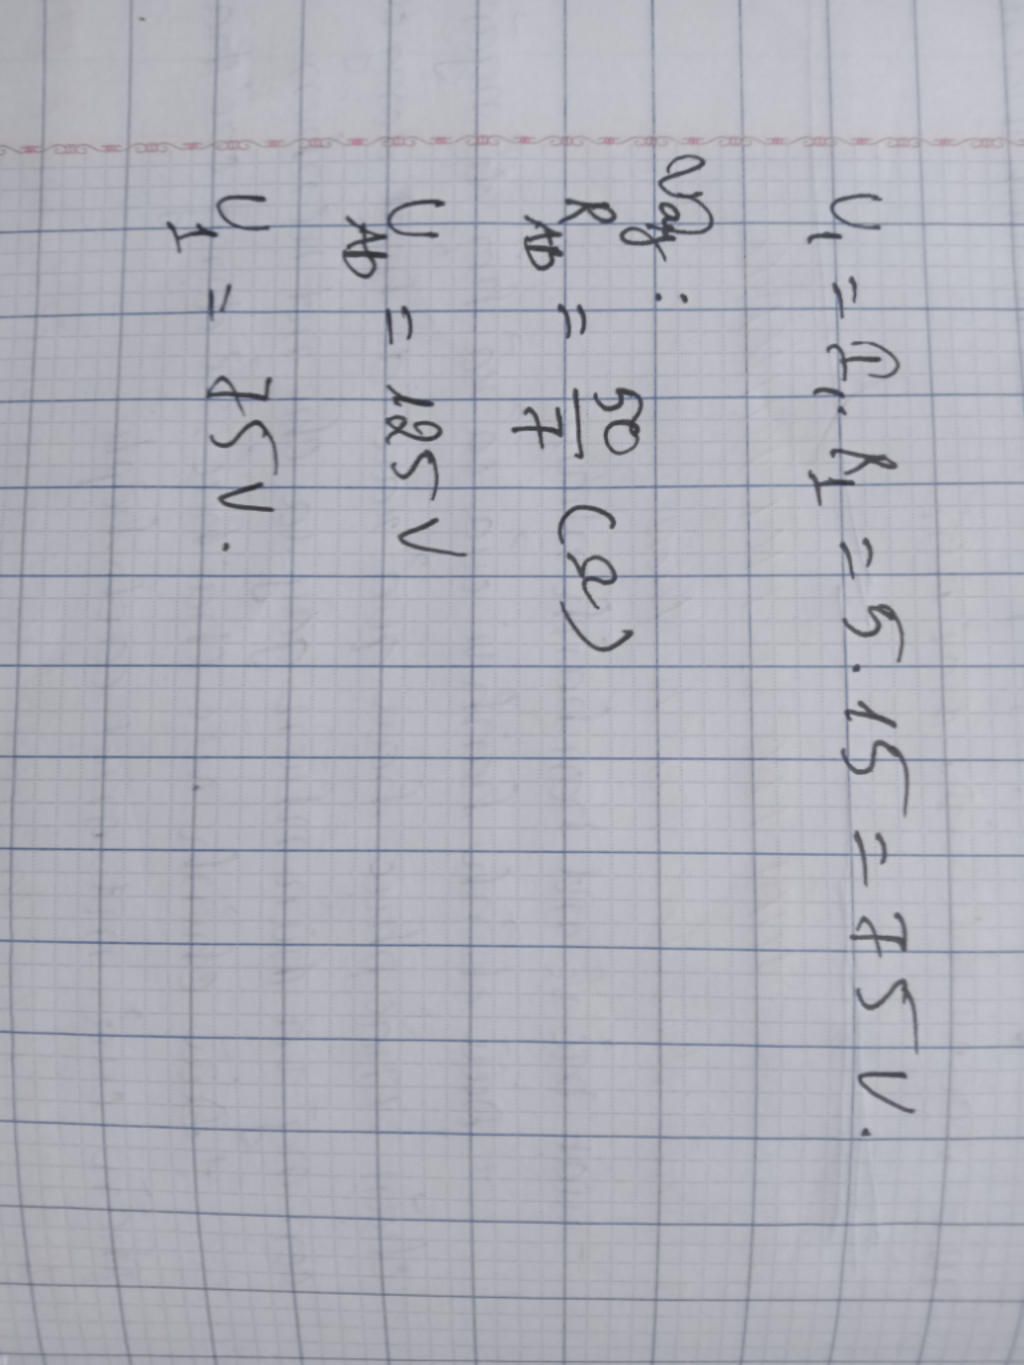 U₁ = I₁. R₁ = 5.15 = 75 V.
Vậy:
R_AB = 50/7 (Ω)
U_AB = 125 V
U₁ = 75 V.